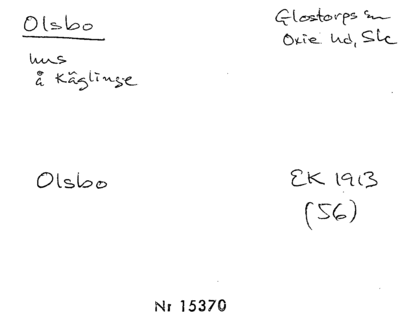 Olsbo
Glostorps sn
Oxie hd, Sk
hus
å Käglinge
Olsbo
EK 1913
(56)
Nr 15370